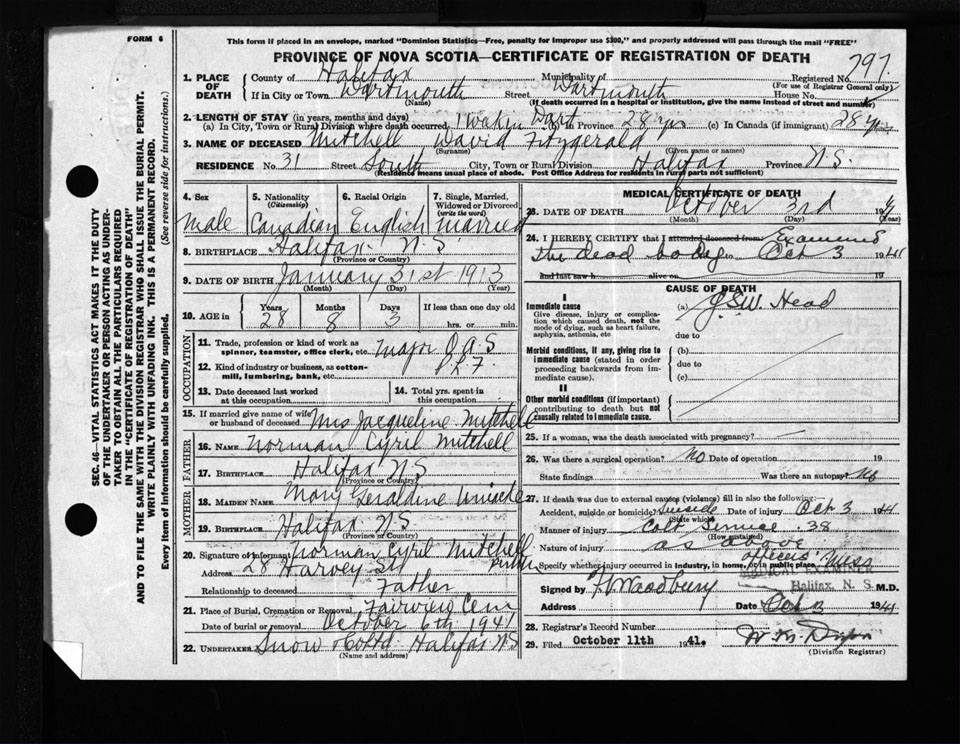 FORM 6
This form if placed in an envelope, marked "Dominion Statistics—Free, penalty for improper use $300," and properly addressed will pass through the mail "FREE"
PROVINCE OF NOVA SCOTIA—CERTIFICATE OF REGISTRATION OF DEATH
SEC. 46—VITAL STATISTICS ACT MAKES IT THE DUTY
OF THE UNDERTAKER OR PERSON ACTING AS UNDER-
TAKER TO OBTAIN ALL THE PARTICULARS REQUIRED
IN THE "CERTIFICATE OF REGISTRATION OF DEATH"
AND TO FILE THE SAME WITH THE DIVISION REGISTRAR WHO SHALL ISSUE THE BURIAL PERMIT.
WRITE PLAINLY WITH UNFADING INK. THIS IS A PERMANENT RECORD.
Every item of information should be carefully supplied. (See reverse side for instructions.)
1. PLACE OF DEATH
County of Halifax Municipality of Registered No. 797
(For use of Registrar General only)
If in City or Town Dartmouth Street Dartmouth House No.
(Name) (If death occurred in a hospital or institution, give the name instead of street and number)
2. LENGTH OF STAY (in years, months and days)
(a) In City, Town or Rural Division where death occurred 1 week in Dart (b) In Province 28 yr (c) In Canada (if immigrant) 28 yr
3. NAME OF DECEASED Mitchell David Fitzgerald
(Surname) (Given name or names)
RESIDENCE No. 31 Street South City, Town or Rural Division Halifax Province N.S.
(Residence means usual place of abode. Post Office Address for residents in rural parts not sufficient)
4. Sex 5. Nationality (Citizenship) 6. Racial Origin 7. Single, Married, Widowed or Divorced (write the word)
Male Canadian English Married
8. BIRTHPLACE Halifax N.S.
(Province or Country)
9. DATE OF BIRTH January 31st 1913
(Month) (Day) (Year)
10. AGE in Years Months Days If less than one day old
28 8 3 hrs. or min.
OCCUPATION
11. Trade, profession or kind of work as spinner, teamster, office clerk, etc. Major
12. Kind of industry or business, as cotton-mill, lumbering, bank, etc.
13. Date deceased last worked at this occupation 14. Total yrs. spent in this occupation
15. If married give name of wife or husband of deceased Mrs Jacqueline Mitchell
FATHER
16. NAME Norman Cyril Mitchell
17. BIRTHPLACE Halifax N.S
(Province or Country)
MOTHER
18. MAIDEN NAME Mary Geraldine
19. BIRTHPLACE Halifax N.S
(Province or Country)
20. Signature of Informant Norman Cyril Mitchell
Address 28 Harvey St
Relationship to deceased Father
21. Place of Burial, Cremation or Removal Fairview Cem
Date of burial or removal October 6th 1941
22. UNDERTAKER Snow & Co Ltd. Halifax N.S
(Name and address)
MEDICAL CERTIFICATE OF DEATH
23. DATE OF DEATH October 3rd 194
(Month) (Day) (Year)
24. I HEREBY CERTIFY that I attended deceased from: Examined
the dead body to Oct 3 1941
and last saw h alive on 19
CAUSE OF DEATH
I
Immediate cause (a) G.S.W. Head
Give disease, injury or complication which caused death, not the mode of dying, such as heart failure, asphyxia, asthenia, etc. due to
Morbid conditions, if any, giving rise to immediate cause (stated in order proceeding backwards from immediate cause). (b) due to (c)
II
Other morbid conditions (if important) contributing to death but not causally related to immediate cause.
25. If a woman, was the death associated with pregnancy?
26. Was there a surgical operation? No Date of operation 19
State findings Was there an autopsy? No
27. If death was due to external causes (violence) fill in also the following:—
Accident, suicide or homicide? Suicide Date of injury Oct 3 1941
(State which)
Manner of injury Colt Service .38
(How sustained)
Nature of injury as above
Specify whether injury occurred in industry, in home, or in public place Officers' Mess
MEDICAL EXAMINER
Halifax, N. S.
Signed by M.D.
Address Date Oct 3 1941
28. Registrar's Record Number
29. Filed October 11th 1941.
(Division Registrar)